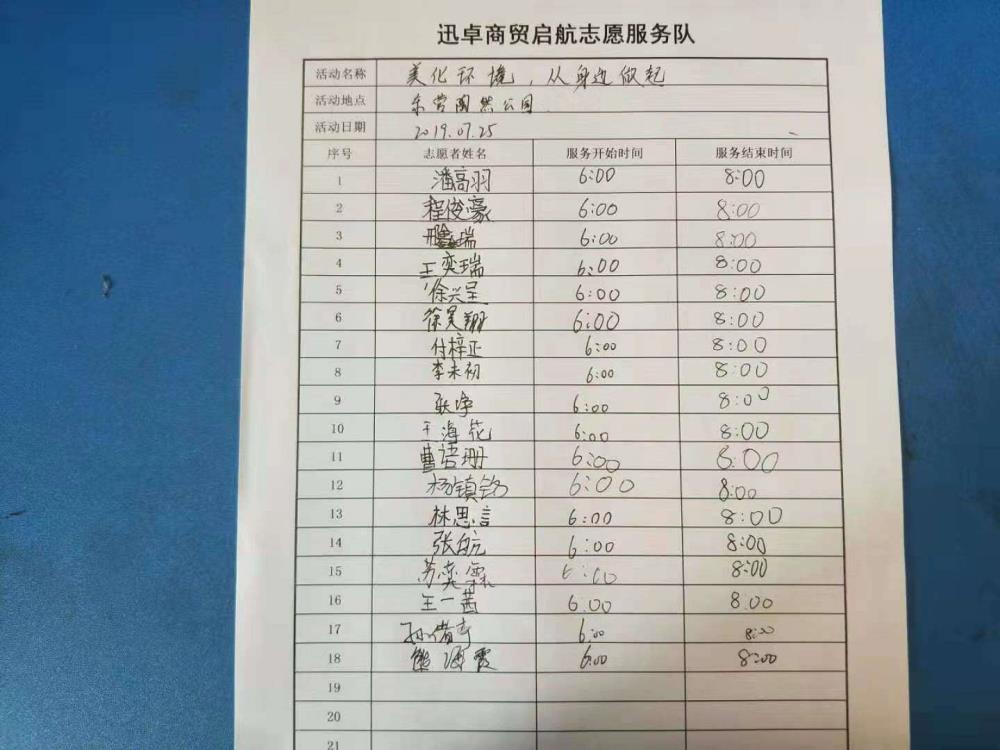 迅卓商贸启航志愿服务队
活动名称 美化环境，从身边做起
活动地点 东营陶然公园
活动日期 2019.07.25
序号 志愿者姓名 服务开始时间 服务结束时间
1 潘高羽 6:00 8:00
2 程俊豪 6:00 8:00
3 瑞 6:00 8:00
4 王奕瑞 6:00 8:00
5 徐兴呈 6:00 8:00
6 徐昊翔 6:00 8:00
7 付梓正 6:00 8:00
8 李未初 6:00 8:00
9 耿净 6:00 8:00
10 王海花 6:00 8:00
11 曹语珊 6:00 8:00
12 杨镇铭 6:00 8:00
13 林思言 6:00 8:00
14 张航 6:00 8:00
15 苏奕霖 6:00 8:00
16 王一茜 6.00 8.00
17 孙 6:00 8:00
18 熊海霞 6:00 8:00
19
20
21